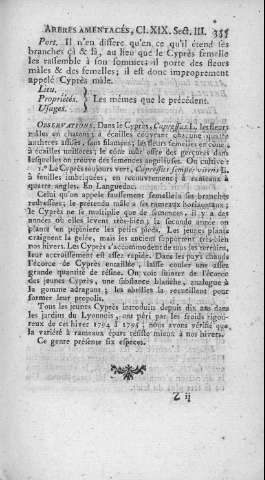 ARBRES AMENTACÉS, Cl. XIX. Sect. III. 355
Port. Il n'en differe qu'en ce qu'il étend ses
branches çà & là, au lieu que le Cyprès femelle
les rassemble à son sommet; il porte des fleurs
mâles & des femelles; il est donc improprement
appelé Cyprès mâle.
Lieu.
Propriétés. } Les mêmes que le précédent.
Usages.
OBSERVATIONS. Dans le Cyprès, Cupressus L. les fleurs
mâles en chaton; à écailles couvrant chacune quatre
antheres assises, sans filamens; les fleurs femelles en cône, à
écailles uniflores; le cône mûr offre des gerçures dans
lesquelles on trouve des semences anguleuses. On cultive
1.° Le Cyprès toujours vert, Cupressus semper virens L.
à feuilles imbriquées, en recouvrement; à quatre
angles. En Languedoc.
Celui qu'on appelle faussement femelle a ses branches
redressées; le prétendu mâle a ses rameaux horizontaux;
le Cyprès ne se multiplie que de semences, il y a des
années où elles levent très-bien; la seconde année on
plante en pépiniere les petits pieds. Les jeunes plants
craignent la gelée, mais les anciens supportent très-bien
nos hivers. Les Cyprès s'accommodent de tous les terreins,
leur accroissement est assez rapide. Dans les pays chauds
l'écorce de Cyprès entaillée, laisse couler une assez
grande quantité de résine. On voit suinter de l'écorce
des jeunes Cyprès, une substance blanche, analogue à
la gomme adragant; les abeilles la recueillent pour
former leur propolis.
Tous les jeunes Cyprès introduits depuis dix ans dans
les jardins du Lyonnois, ont péri par les froids rigou-
reux de cet hiver 1794 à 1795; nous avons vérifié que
la variété à rameaux épars résiste mieux à nos hivers.
Ce genre présente six especes.
Z ij